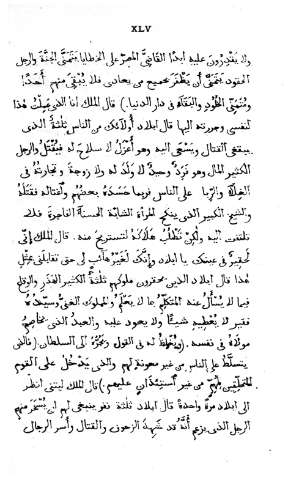 XLV
ولا يقدرون عليه أبدًا القاضي المصرّ على الخطايا يتمنّى الجنّة والرجل
الحقود يتمنّى أن يظفر بجميع من يعادى فلا يُبْقِى منهم أَحَدًا
ومتمنّى الخلود والبقاء في دار الدنيا. قال الملك أنا الذى عملت هذا
لنفسى وجررته اليها قال ايلاد أولآئك من الناس ثلثة الذى
يبتغى القتال ويسعى اليه وهو أعزل لا سلاح له فيُقْتَل والرجل
الكثير المال وهو فرد وحيد لا ولد له ولا زوجة وتجارته فى
الغلة والربا على الناس فربما حسده بعضهم واغتاله فقتله
والشيخ الكبير الذى ينكح المرأة الشابّة الحسنة الفاجرة فلا
تلتفت اليه ولكن تطلب هلاكه لتستريح منه. قال الملك إنّي
لحقير في عينك يا ايلاد وإنّك لغير هائب لى حتى تقابلنى بمثل
هذا قال ايلاد الذين يحتقرون ملوكهم ثلثة الكثير الهذر والرقم
فيما لا يسأل عنه المتكلّم بما لا يعلم والمملوك الغنى وسيّده
فقير لا يعطيه شيئًا ولا يعود عليه والعبد الذى يخاصم
مولاه فى نفسه. ويغلظ له فى القول ويجرّه الى السلطان قالذى
يتسلّط على الناس من غير معونة لهم والذى يدخل على القوم
من غير استئذان عليهم. قال الملك ليتنى انظر
الى ايلاد مرة واحدة قال ايلاد ثلثة نفر ينبغى لهم ان يُسْخَر منهم
الرجل الذى يزعم أنّه قد شهد الزحوف والقتال وأسر الرجال